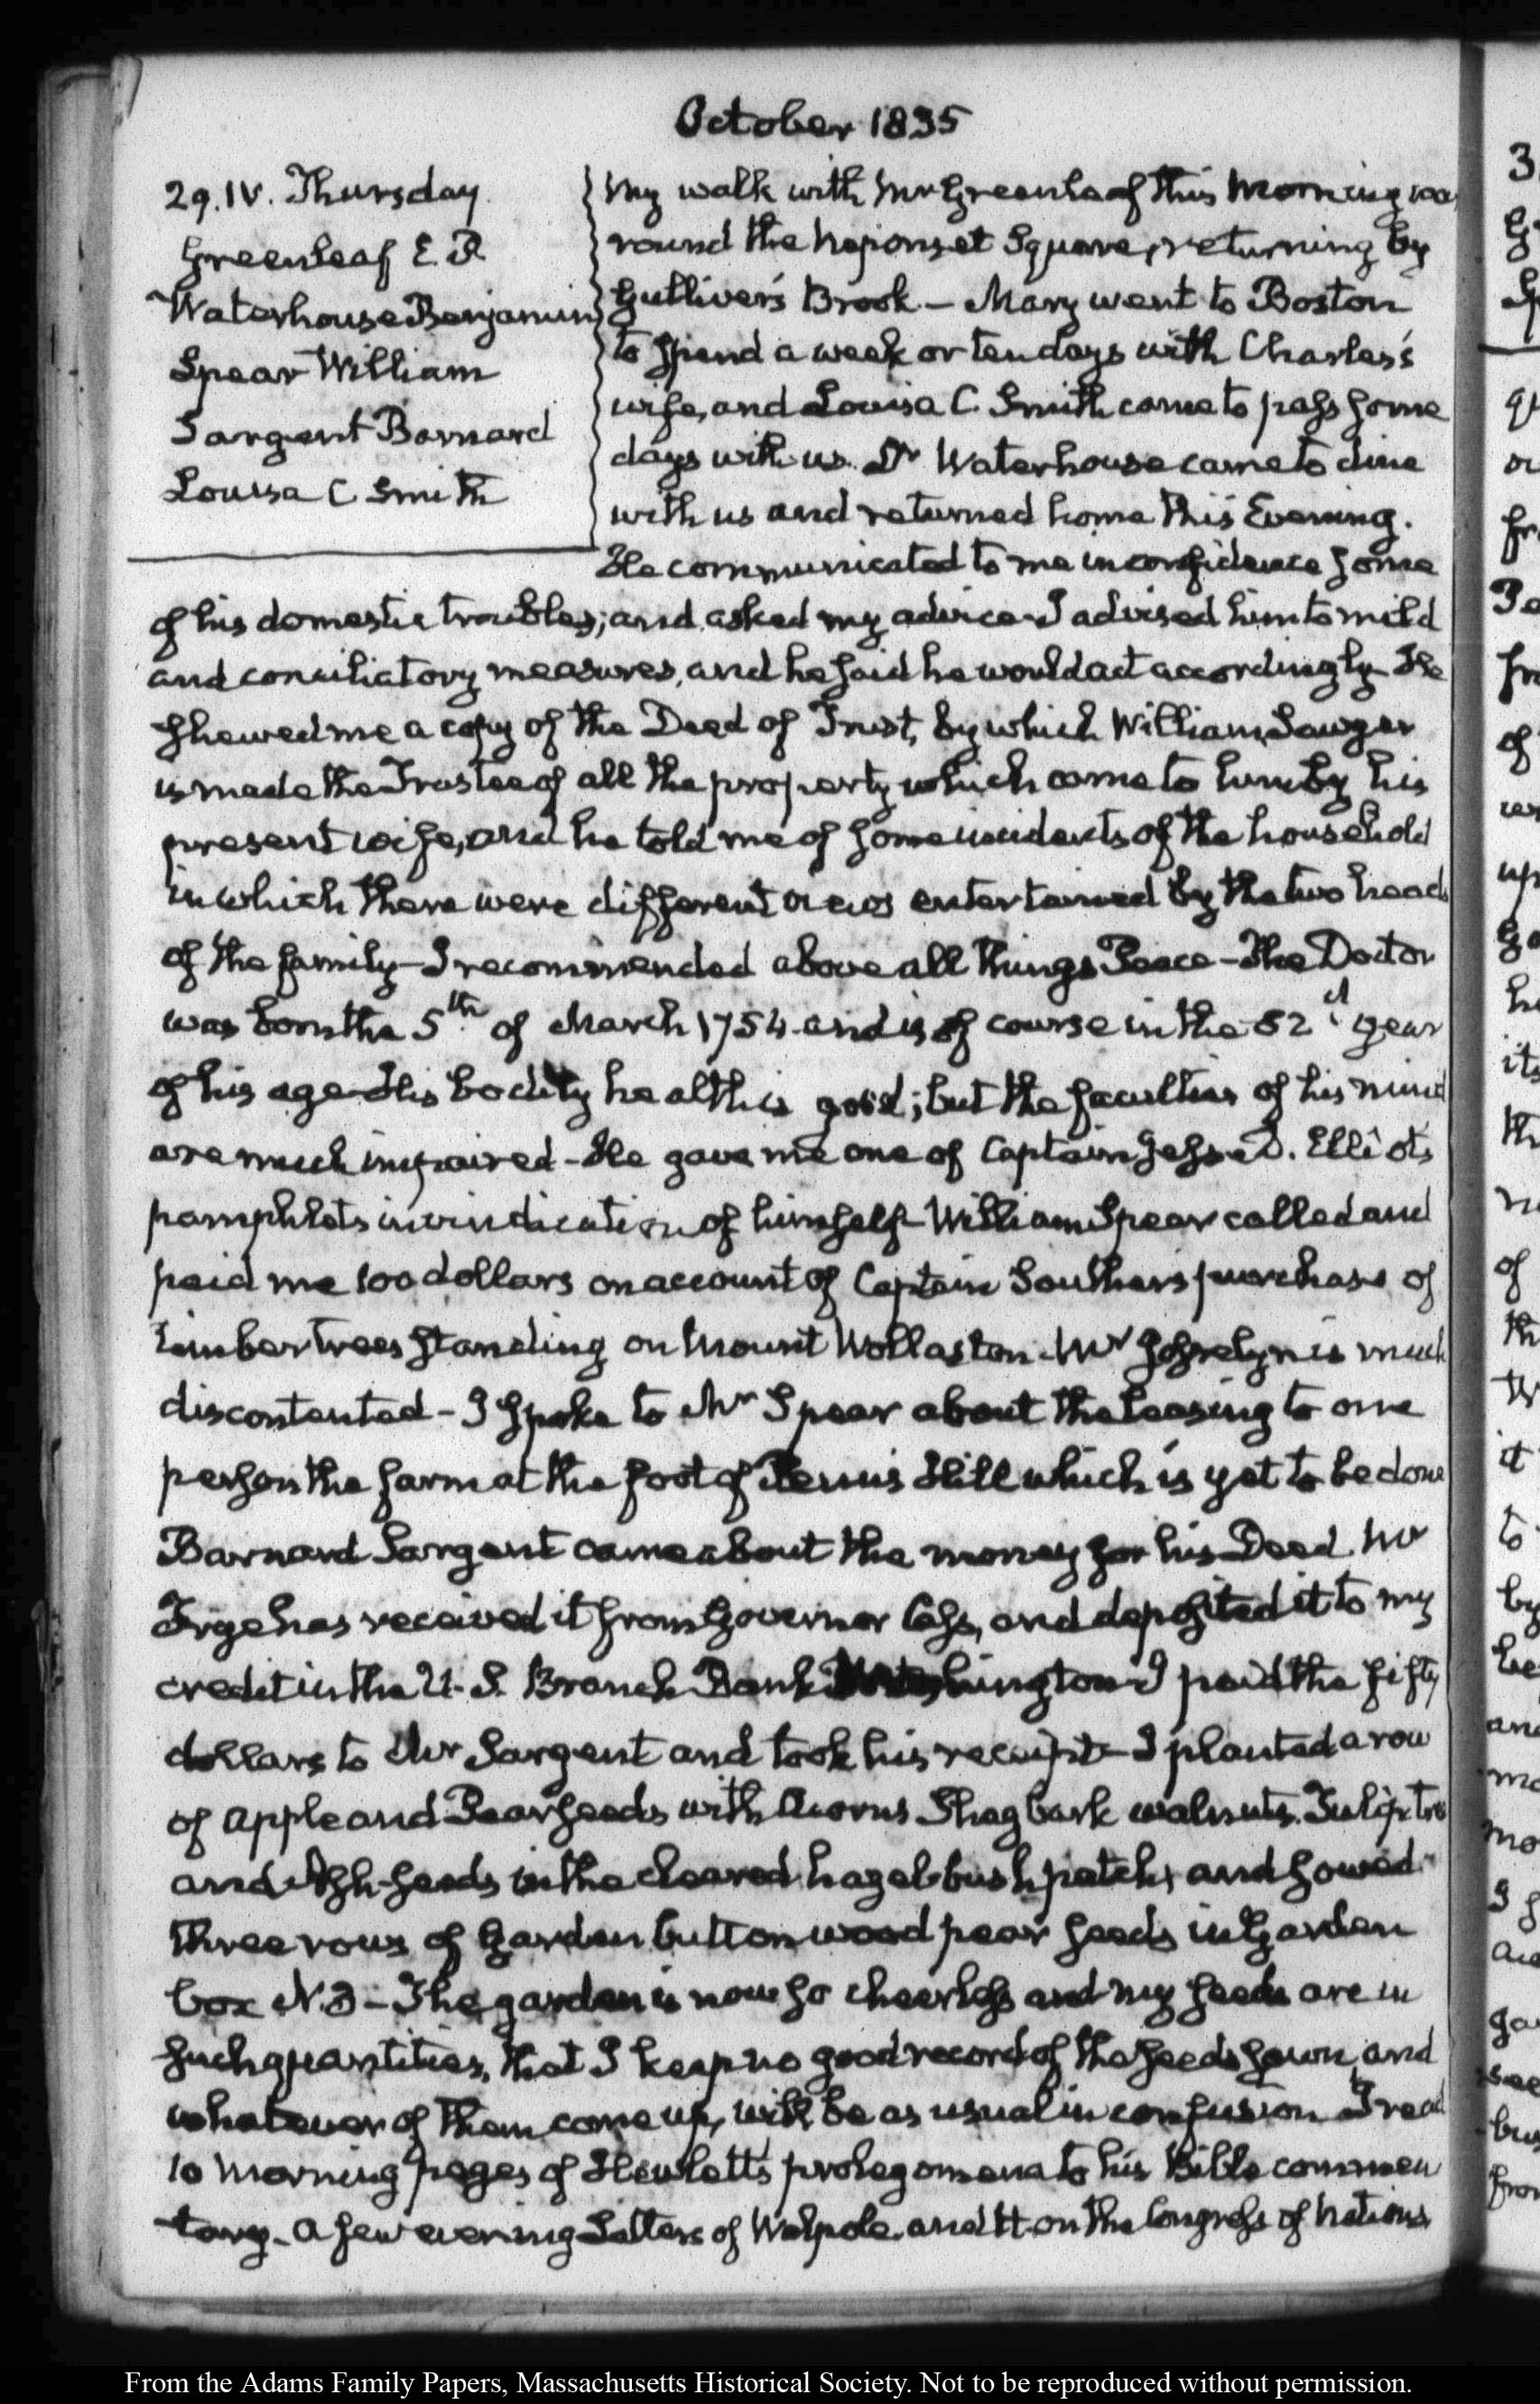 October 1835
29. IV. Thursday
Greenleaf E. P.
Waterhouse Benjamin
Spear William
Sargent Barnard
Louisa C Smith
My walk with Mr Greenleaf this Morning was
round the Neponset Square, returning by
Gulliver's Brook — Mary went to Boston
to spend a week or ten days with Charles's
wife, and Louisa C. Smith came to pass some
days with us. Dr Waterhouse came to dine
with us and returned home this Evening.
He communicated to me in confidence some
of his domestic troubles; and asked my advice. I advised him to mild
and conciliatory measures, and he said he would act accordingly. He
shewed me a copy of the Deed of Trust, by which William Sawyer
is made the Trustee of all the property which came to him by his
present wife, and he told me of some incidents of the household
in which there were different views entertained by the two heads
of the family — I recommended above all things Peace — The Doctor
was born the 5th of March 1754 and is of course in the 82d year
of his age. His bodily health is good; but the faculties of his mind
are much impaired — He gave me one of Captain Jesse D. Elliot's
pamphlets in vindication of himself — William Spear called and
paid me 100 dollars on account of Captain Souther's purchase of
timber trees standing on Mount Wollaston. Mr Josselyn is much
discontented — I spoke to Mr Spear about the leasing to one
person the farm at the foot of Penn's Hill which is yet to be done
Barnard Sargent came about the money for his Deed. Mr
Frye has received it from Governor Cass, and deposited it to my
credit in the U. S. Branch Bank Washington — I paid the fifty
dollars to Mr Sargent and took his receipt — I planted a row
of apple and Pear seeds with Acorns Shagbark walnuts. Tulip tree
and Ash-seeds in the cleared hazel bush patch, and sowed
three rows of Garden button wood pear seeds in Garden
box N. 3 — The garden is now so cheerless and my seeds are in
such quantities, that I keep no good record of the seeds sown, and
whatever of them come up, will be as usual in confusion. I read
10 morning pages of Hewlett's prolegomena to his Bible commen
tary. A few evening Letters of Walpole, and tt. on the Congress of Nations
From the Adams Family Papers, Massachusetts Historical Society. Not to be reproduced without permission.